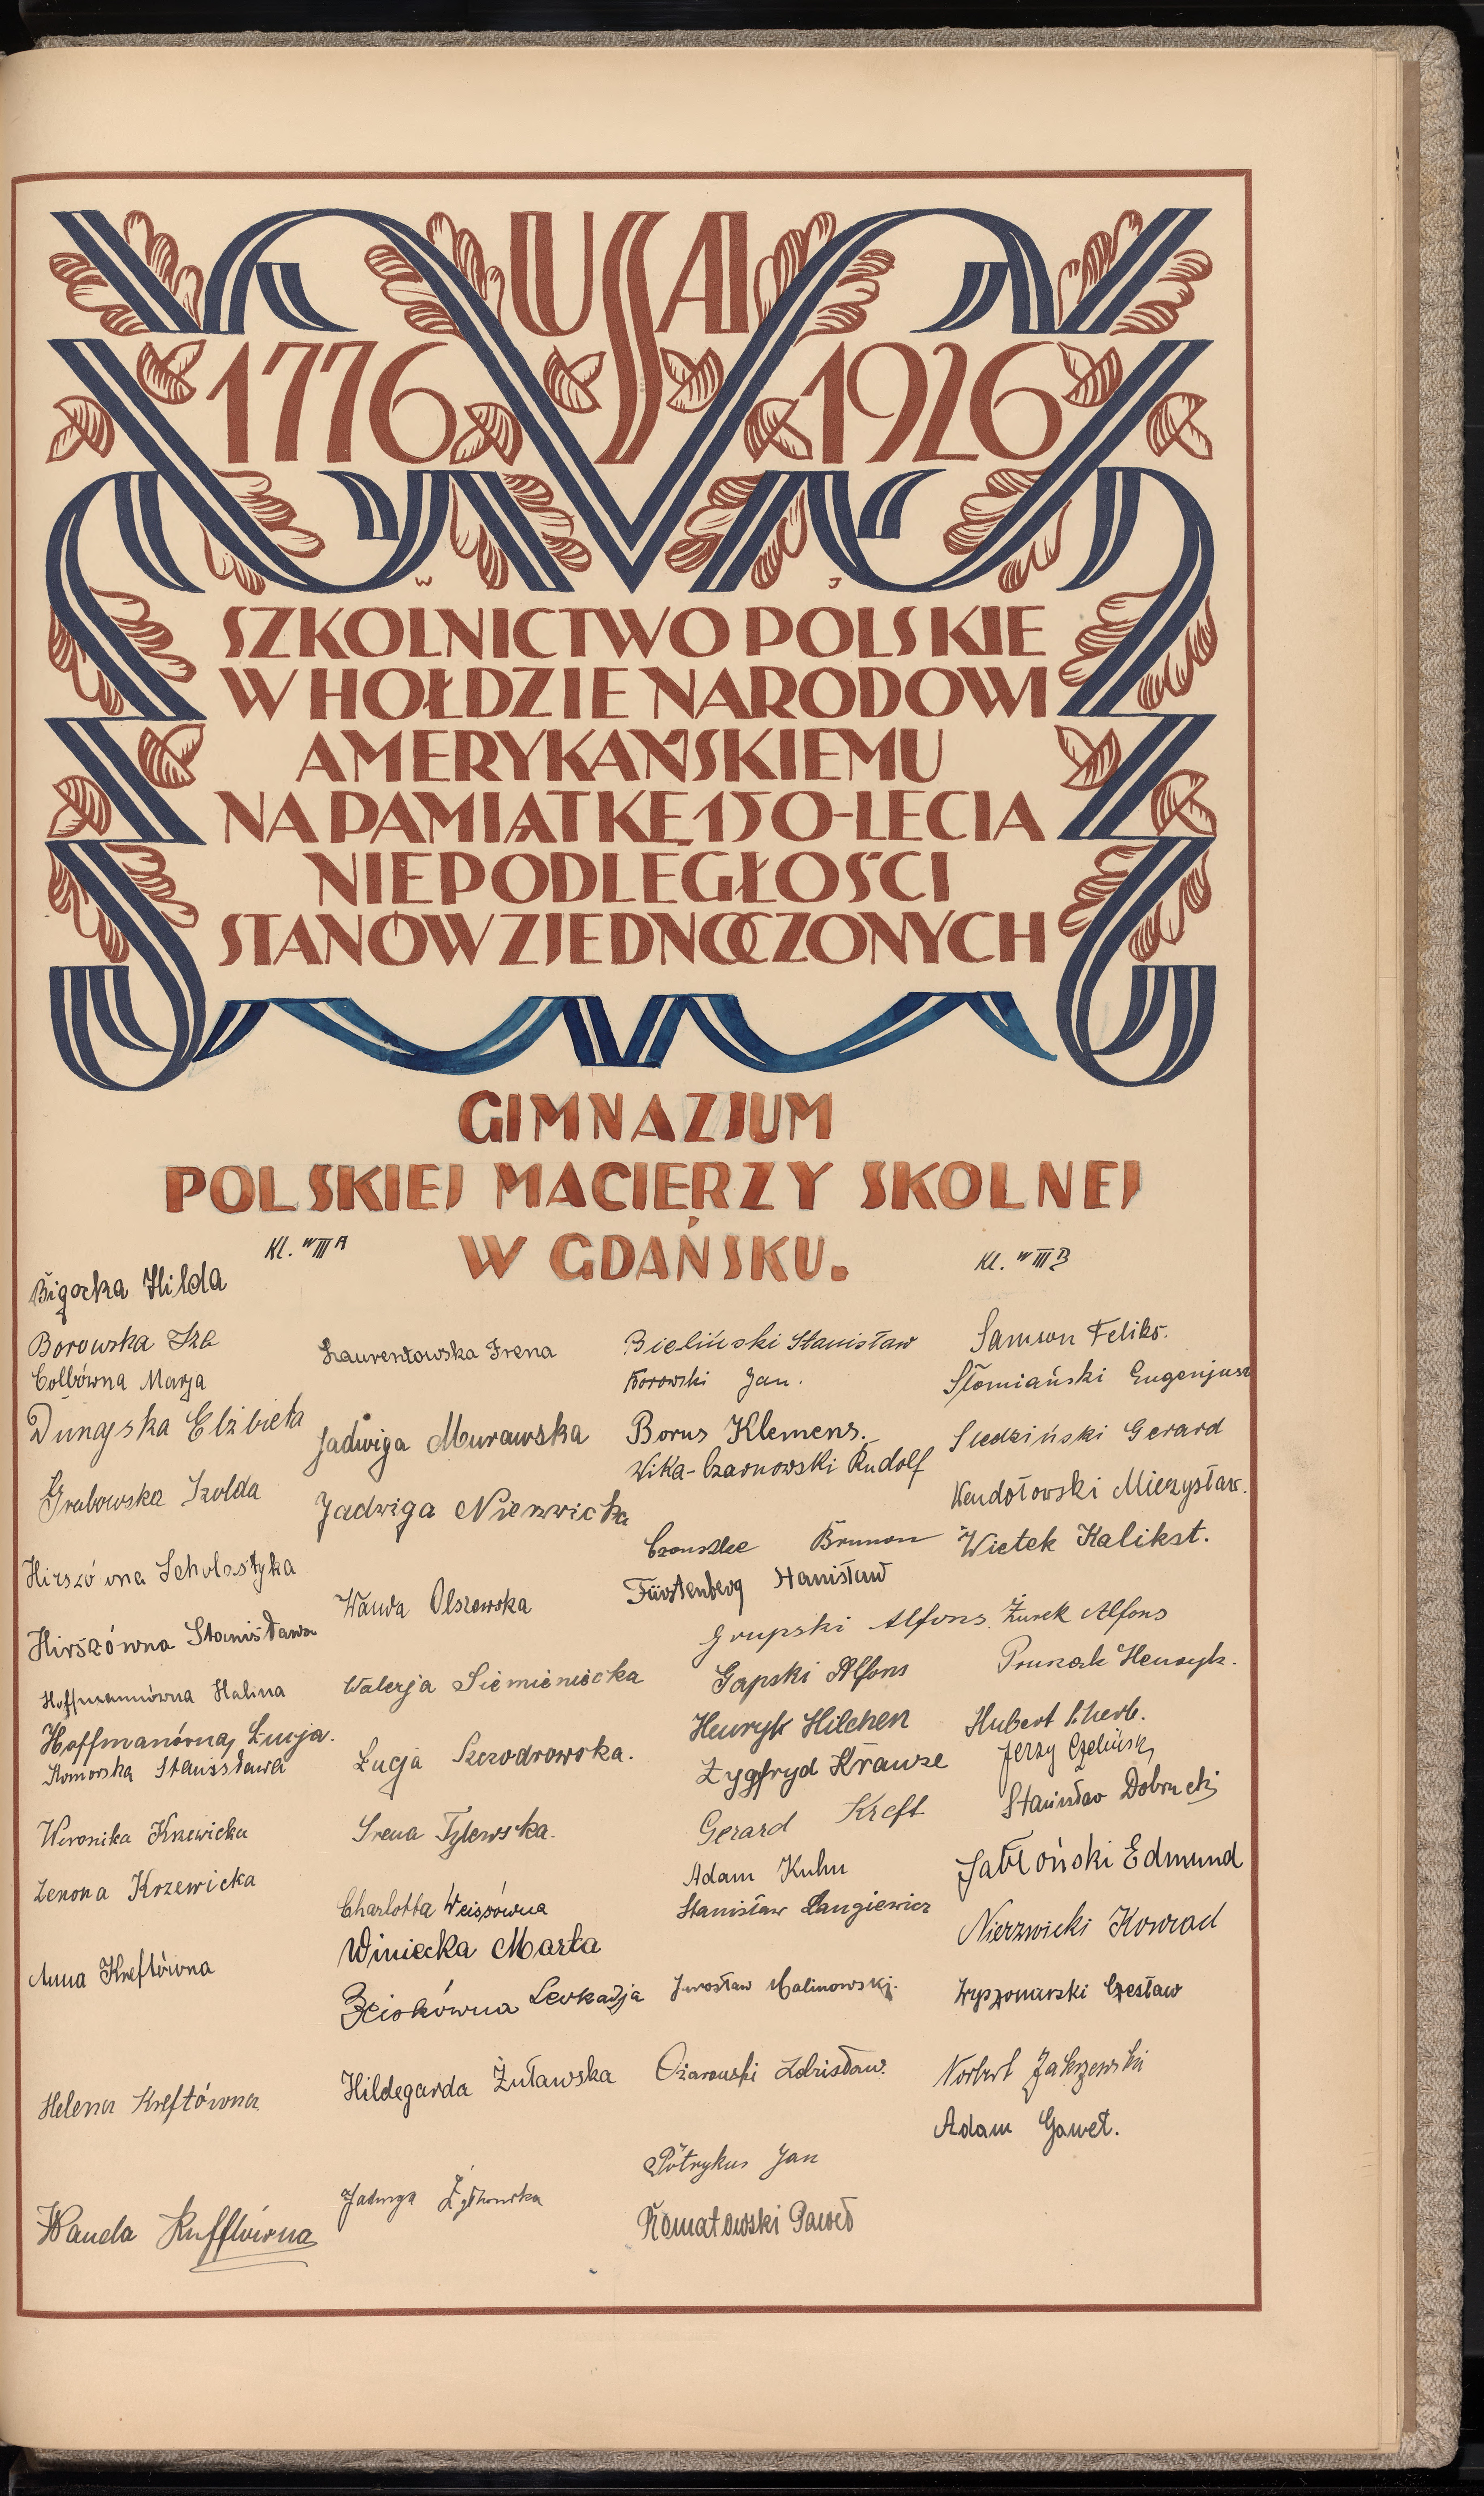 USA
1776 1926
W J
SZKOLNICTWO POLSKIE
W HOŁDZIE NARODOWI
AMERYKAŃSKIEMU
NA PAMIĄTKĘ 150-LECIA
NIEPODLEGŁOŚCI
STANÓW ZJEDNOCZONYCH
GIMNAZJUM
POLSKIEJ MACIERZY SKOLNEJ
W GDAŃSKU.
Kl. VIII A
Bigocka Hilda
Borowska Iza
Colbówna Marja
Dunajska Elżbieta
Grabowska Izolda
Hirszówna Scholastyka
Hirszówna Stanisława
Hoffmannówna Halina
Hoffmanówna Łucja.
Komorska Stanisława
Weronika Krzewicka
Zenona Krzewicka
Anna Kreftówna
Helena Kreftówna
Wanda Kufflówna
Laurentowska Irena
Jadwiga Murawska
Jadwiga Nierzwicka
Wanda Olszewska
Walerja Siemieniecka
Łucja Szczodrowska.
Irena Tylewska.
Charlotta Weissówna
Winiecka Marta
Leokadja
Hildegarda Żuławska
Jadwiga
Kl. VIII B
Bieliński Stanisław
Borowski Jan.
Borus Klemens.
Wika-Czarnowski Rudolf
Brunon
Fürstenberg Stanisław
Grupski Alfons
Gapski Alfons
Henryk Hilchen
Zygfryd Krause
Gerard Kreft
Adam Kuhn
Stanisław Langiewicz
Jarosław Malinowski.
Ożarowski Zdzisław.
Potrykus Jan
Romatowski Paweł
Samson Feliks.
Słomiański Eugenjusz
Śledziński Gerard
Wendołowski Mieczysław.
Wietek Kalikst.
Żurek Alfons
Henryk.
Hubert
Jerzy Czeliński
Stanisław Dobrucki
Jabłoński Edmund
Nierzwicki Konrad
Czesław
Norbert Zakrzewski
Adam Gaweł.